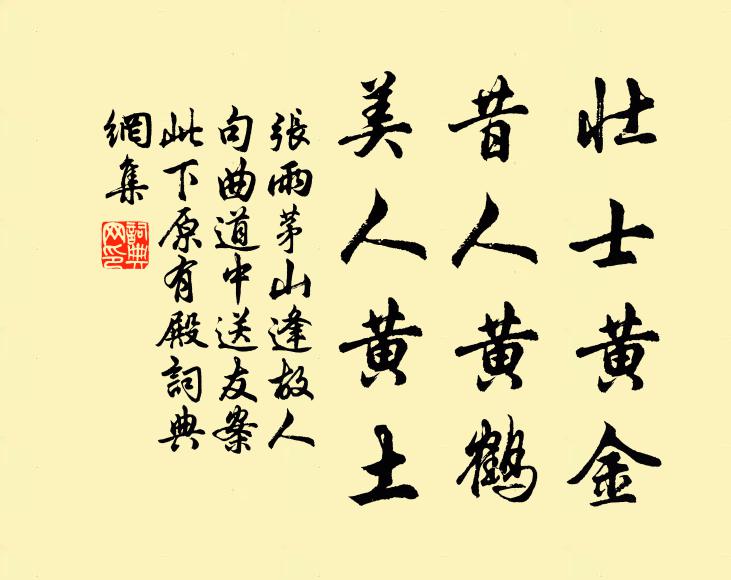 壮士黄金
昔人黄鶴
美人黄土
張雨茅山逢故人
句曲道中送友案
此下原有殿詞典
網集
詞典
网印